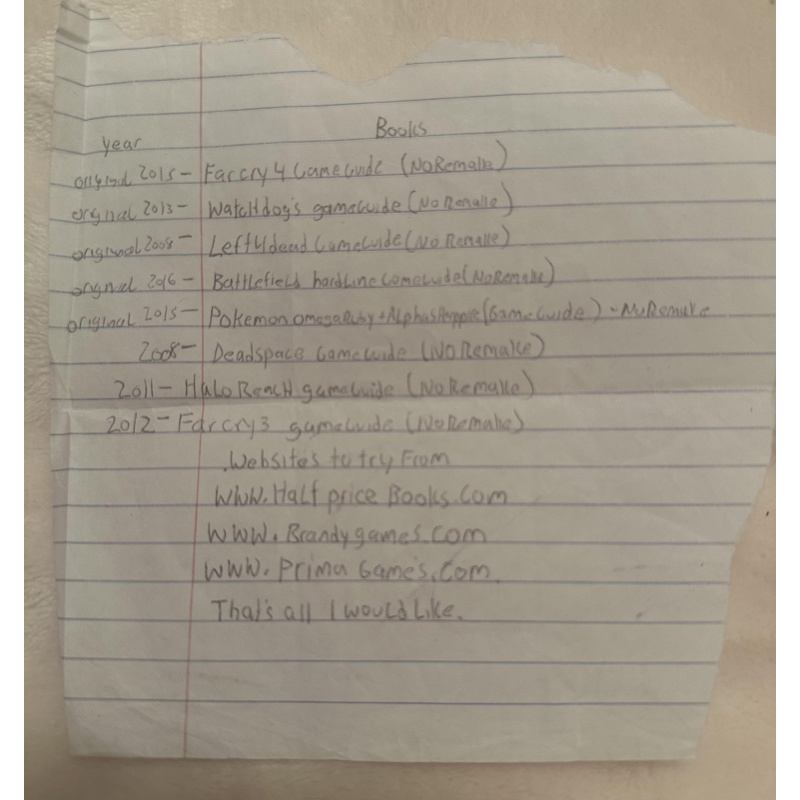 Books
year
original 2015 - Farcry 4 GameGuide (No Remake)
orginal 2013 - Watchdog's gameGuide (No Remake)
original 2008 - Left4dead GameGuide (No Remake)
orginal 2016 - Battlefield hardline GameGuide (No Remake)
original 2015 - Pokemon omega Ruby + Alpha (Game Guide) - No Remake
2008 - Deadspace GameGuide (No Remake)
2011 - Halo Reach gameGuide (No Remake)
2012 - Farcry3 gameGuide (No Remake)
.Websites to try From
WWW.Half price Books.Com
WWW.Brandygames.com
WWW.Prima Games.Com
That's all I would Like.